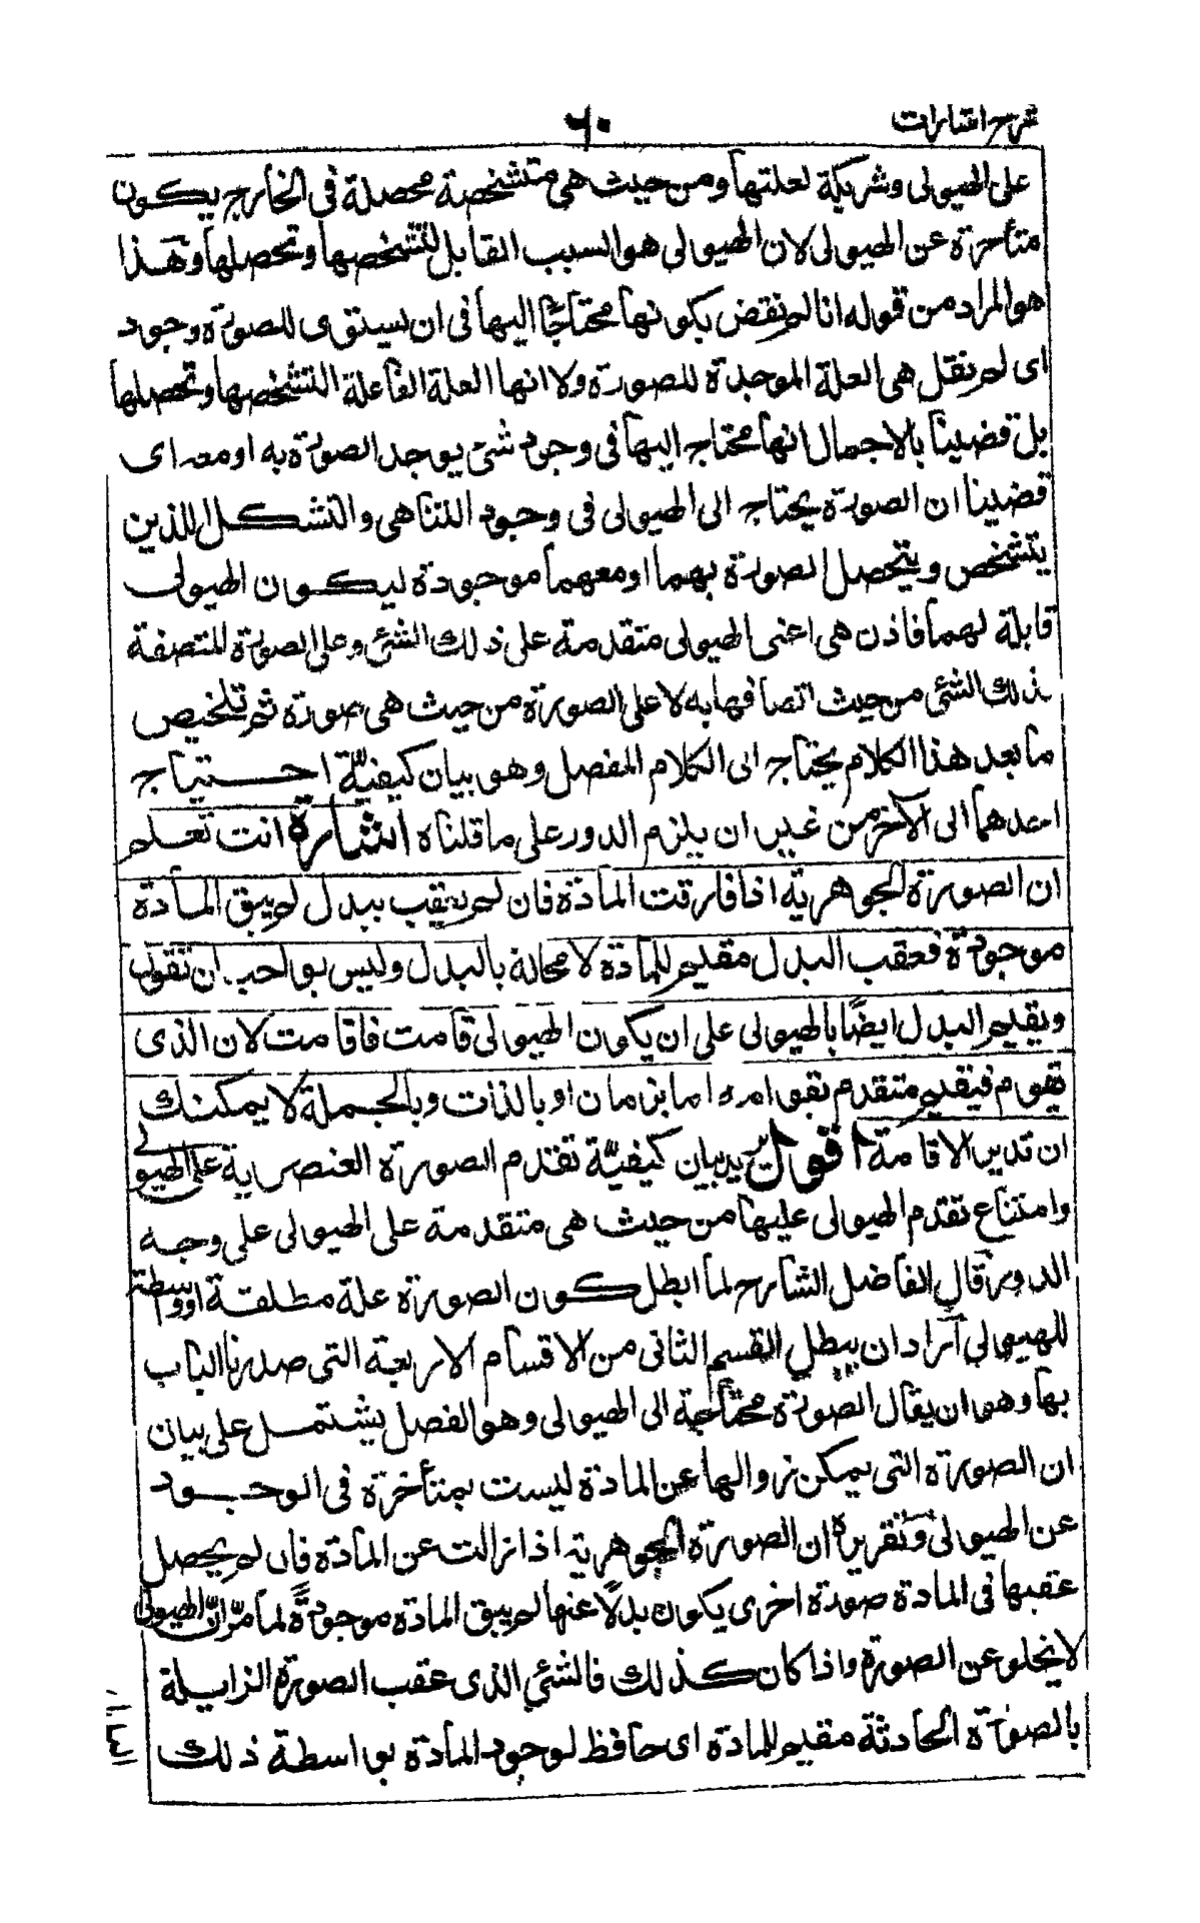 شرح اشارات
٦٠
على الهيولى وشريكة لعلتها ومن حيث هي متشخصة محصلة في الخارج يكون
متأخرة عن الهيولى لان الهيولى هو السبب القابل لتشخصها وتحصلها وهذا
هو المراد من قوله انا لم نقض بكونها محتاجًا اليها فى ان يستوى للصورة وجود
اى لم نقل هى العلة الموجدة للصورة ولا انها العلة الفاعلة لتشخصها وتحصلها
بل قضينا بالاجمال انها محتاج اليها فى وجود شئ يوجد الصورة به او معه اى
قضينا ان الصورة يحتاج الى الهيولى فى وجود التناهى والتشكل الذين
يتشخص ويتحصل الصورة بهما او معهما موجودة ليكون الهيولى
قابلة لهما فاذن هى اعنى الهيولى متقدمة على ذلك الشئ وعلى الصورة المتصفة
بذلك الشئ من حيث اتصافها به لا على الصورة من حيث هى صورة ثم تلخيص
ما بعد هذا الكلام يحتاج الى الكلام المفصل وهو بيان كيفيّة احتياج
احدهما الى الآخر من غير ان يلزم الدور على ما قلناه اشارة انت تعلم
ان الصورة الجوهرية اذا فارقت المادة فان لم يعقب ببدل لم يبق المادة
موجودة فمعقب البدل مقيم للمادة لا محالة بالبدل وليس بواجب ان تقول
ويقيم البدل ايضًا بالهيولى على ان يكون الهيولى قامت فاقامت لان الذى
يقوم فيقيم متقدم بقوامه اما بزمان او بالذات وبالجملة لا يمكنك
ان تدير الاقامة اقول يريد بيان كيفيّة تقدم الصورة العنصرية على الهيولى
وامتناع تقدم الهيولى عليها من حيث هى متقدمة على الهيولى على وجه
الدور قال الفاضل الشارح لما ابطل كون الصورة علة مطلقة او واسطة
للهيولى اراد ان يبطل القسم الثانى من الاقسام الاربعة التى صدرنا الباب
بها وهو ان يقال الصورة محتاجة الى الهيولى وهو الفصل يشتمل على بيان
ان الصورة التى يمكن زوالها عن المادة ليست بمتأخرة فى الوجود
عن الهيولى وتقريره ان الصورة الجوهرية اذا زالت عن المادة فان لم يحصل
عقبها فى المادة صورة اخرى يكون بدلًا عنها لم يبق المادة موجودةً لما مرّ انّ الهيولى
لا يخلو عن الصورة واذا كان كذلك فالشئ الذى عقب الصورة الزايلة
بالصورة الحادثة مقيم للمادة اى حافظ لوجود المادة بواسطة ذلك